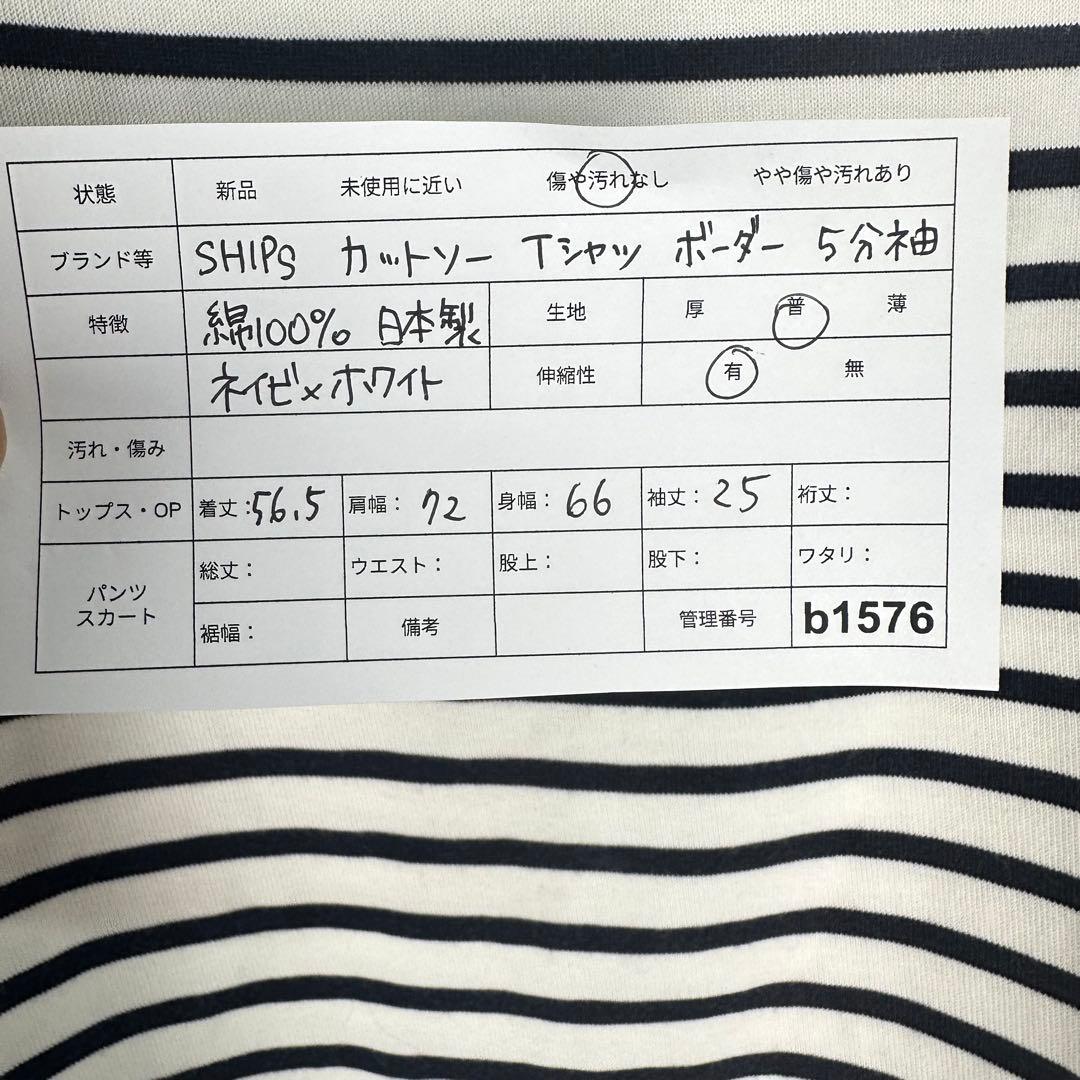 状態 新品 未使用に近い 傷や汚れなし やや傷や汚れあり
ブランド等 SHIPS カットソー Tシャツ ボーダー 5分袖
特徴 綿100% 日本製 生地 厚 普 薄
ネイビ×ホワイト 伸縮性 有 無
汚れ・傷み
トップス・OP 着丈:56.5 肩幅: 72 身幅: 66 袖丈: 25 裄丈:
パンツ
スカート
総丈: ウエスト: 股上: 股下: ワタリ:
裾幅: 備考 管理番号 b1576